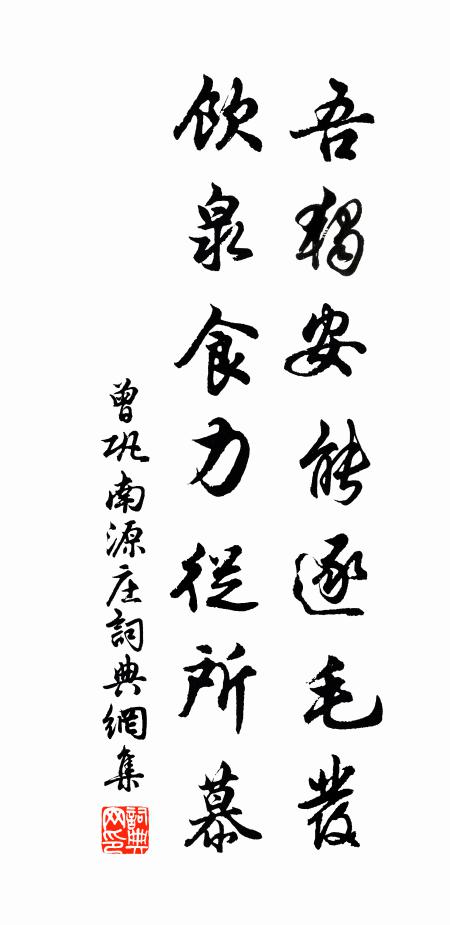 吾獨安能逐毛髮
飲泉食力從所慕
曾巩南源庄詞典網集
詞典网印